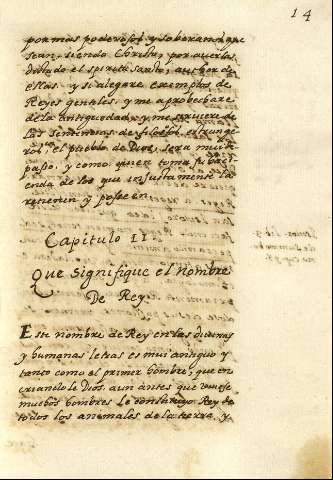 14
por mas poderosos y soberanos que
sean, siendo Christo, por averlas
dictado el spiritu santo, author de
ellas. y si alegare exemplos de
Reyes gentiles, y me aprobechare
de la antiguedad, y me sirviere de
las sentencias de filosofos estrange
ros del pueblo de Dios, sera mui de
paso, y como quien toma su haci
enda de los que injustamente la
retienen y poseen.
Capitulo II
Que signifique el nombre
De Rey.
Este nombre de Rey en las divinas
y humanas letras es mui antiguo y
tanto como el primer hombre, que en
criandolo Dios, aun antes que uviese
muchos hombres le constituyo Rey de
todos los animales de la tierra, y